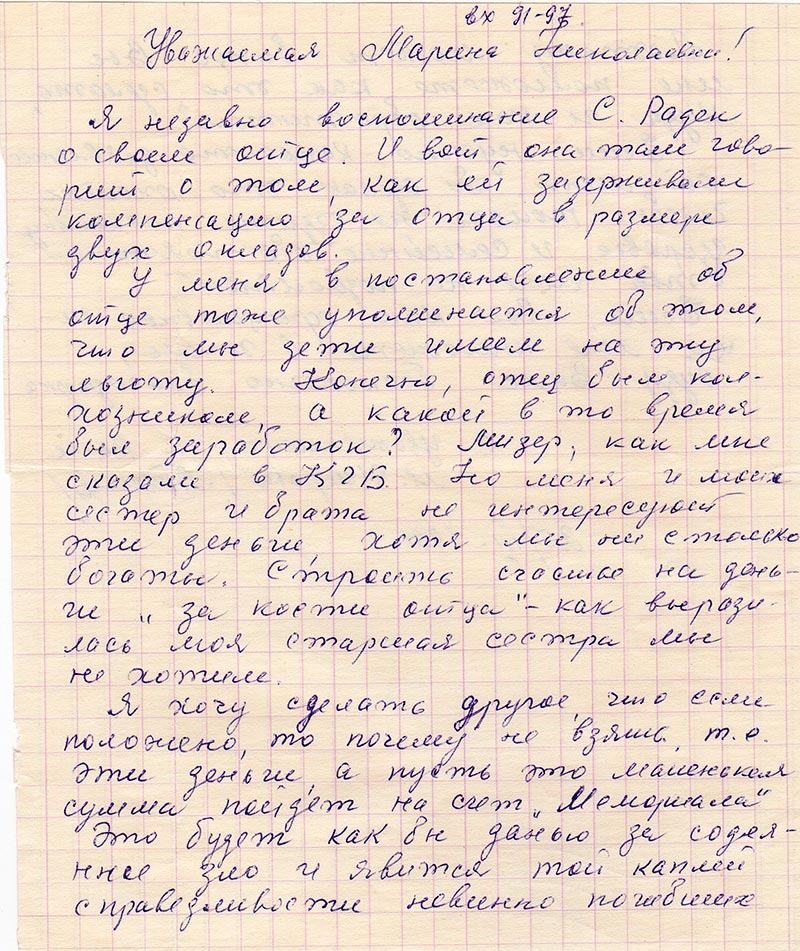 вх 91-97.
Уважаемая Марина Николаевна!
Я незавно воспоминание С. Раден
о своем отце. И вот она там гово-
рит о том, как ей задерживали
компенсацию за отца в размере
двух окладов.
У меня в постановлении об
отце тоже упоминается об этом,
что мы дети имеем на эту
льготу. Конечно, отец был кол-
хозником, а какой в то время
был заработок? Мизер, как мне
сказали в КГБ. Но меня и моих
сестер и брата не интересуют
эти деньги, хотя мы ни столько
богаты. Строить счастье на день-
ги „за кости отца" - как вырази-
лась моя старшая сестра мы
не хотим.
Я хочу сделать другое, что если
положено, то почему не взять, т.е.
эти деньги, а пусть это маленькая
сумма пойдет на счет „Мемориала"
Это будет как бы данью за содея-
нное зло и явится той каплей
справедливости невинно погибших